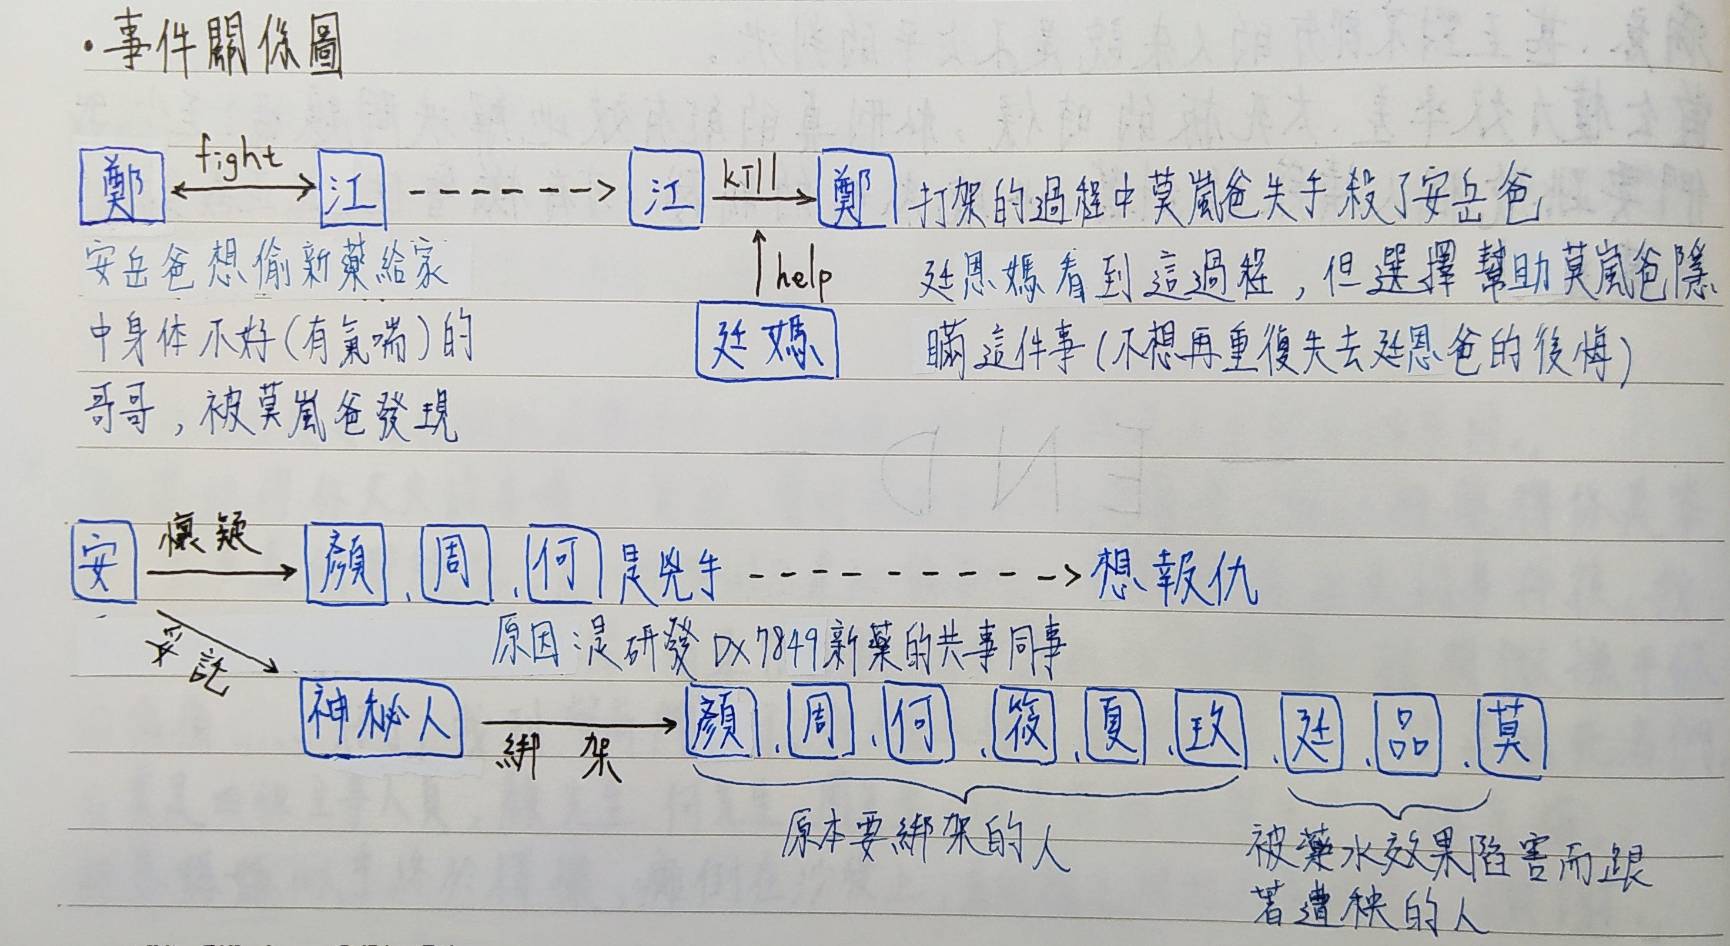 ·事件關係圖
鄭 fight 江 江 kill 鄭 打架的過程中莫嵐爸失手殺了安岳爸
安岳爸想偷新藥給家 help 廷恩媽看到這過程,但選擇幫助莫嵐爸隱
中身体不好(有氣喘)的 廷媽 瞞這件事(不想再重復失去廷恩爸的後悔)
哥哥,被莫嵐爸發現
安 懷疑 顏、周、何 是兇手 想報仇
委託 原因:是研發DX7849新藥的共事同事
神秘人 綁架 顏、周、何、筱、夏、玫、廷、品、莫
原本要綁架的人 被藥水效果陷害而跟
著遭殃的人